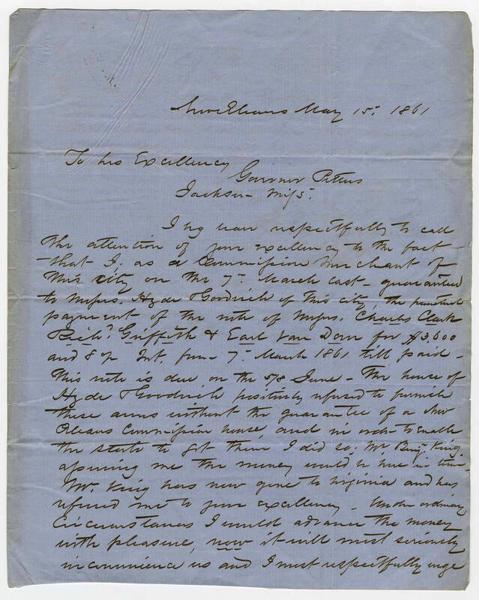 New Orleans May 15th 1861
To his Excellency
Governor Pettus
Jackson Miss.
I beg leave respectfully to call
the attention of your excellency to the fact
that I, as a Commission Merchant of
this city on the 7th March last guaranteed
to Messrs. Hyde & Goodrich of this city, the punctual
payment of the note of Messrs. Charles Clark
Richd Griffith & Earl Van Dorn for $3,600
and 8 pr Int. from 7th March 1861 till paid -
This note is due on the 5/8 June - The house of
Hyde & Goodrich positively refused to furnish
these arms without the guarantee of a New
Orleans Commission house, and in order to enable
the state to get them I did so, Mr. Benj. King
assuring me the money would be here in time
Mr. King has now gone to Virginia and has
referred me to your excellency - Under ordinary
Circumstances I would advance the money
with pleasure, now it will most seriously
inconvenience us and I must respectfully urge